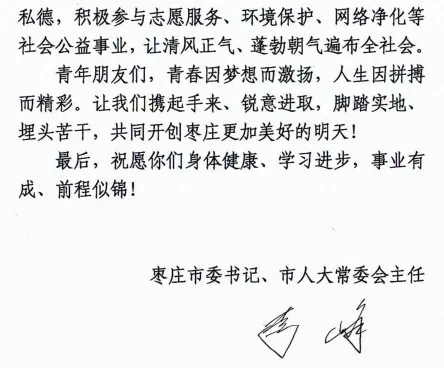 私德，积极参与志愿服务、环境保护、网络净化等
社会公益事业，让清风正气、蓬勃朝气遍布全社会。
青年朋友们，青春因梦想而激扬，人生因拼搏
而精彩。让我们携起手来、锐意进取，脚踏实地、
埋头苦干，共同开创枣庄更加美好的明天！
最后，祝愿你们身体健康、学习进步，事业有
成、前程似锦！
枣庄市委书记、市人大常委会主任
李峰